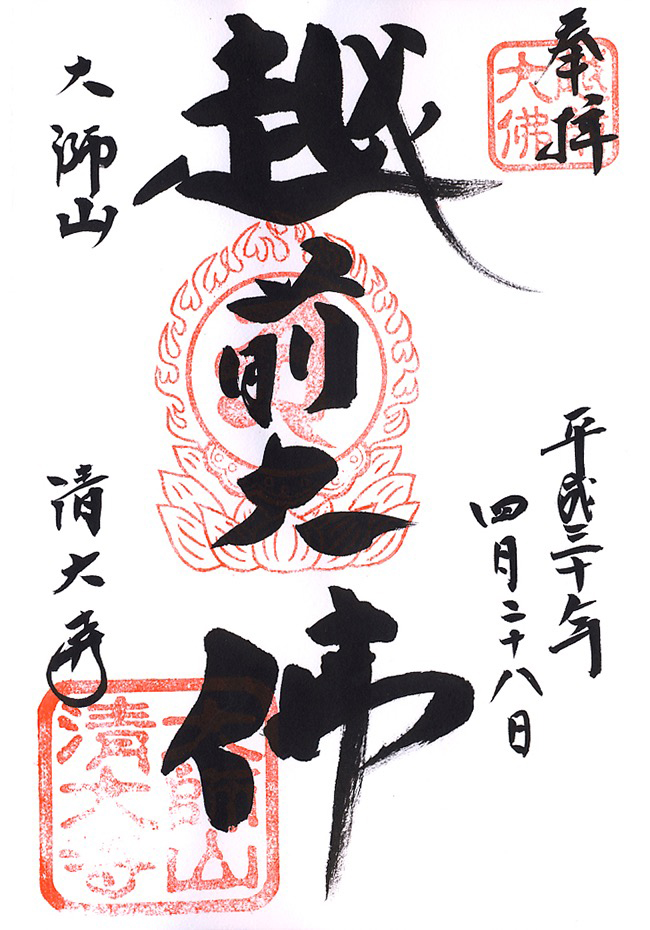 奉拝
越前
大佛
平成三十年
四月二十八日
越前大佛
大師山
清大寺
大師山
清大寺